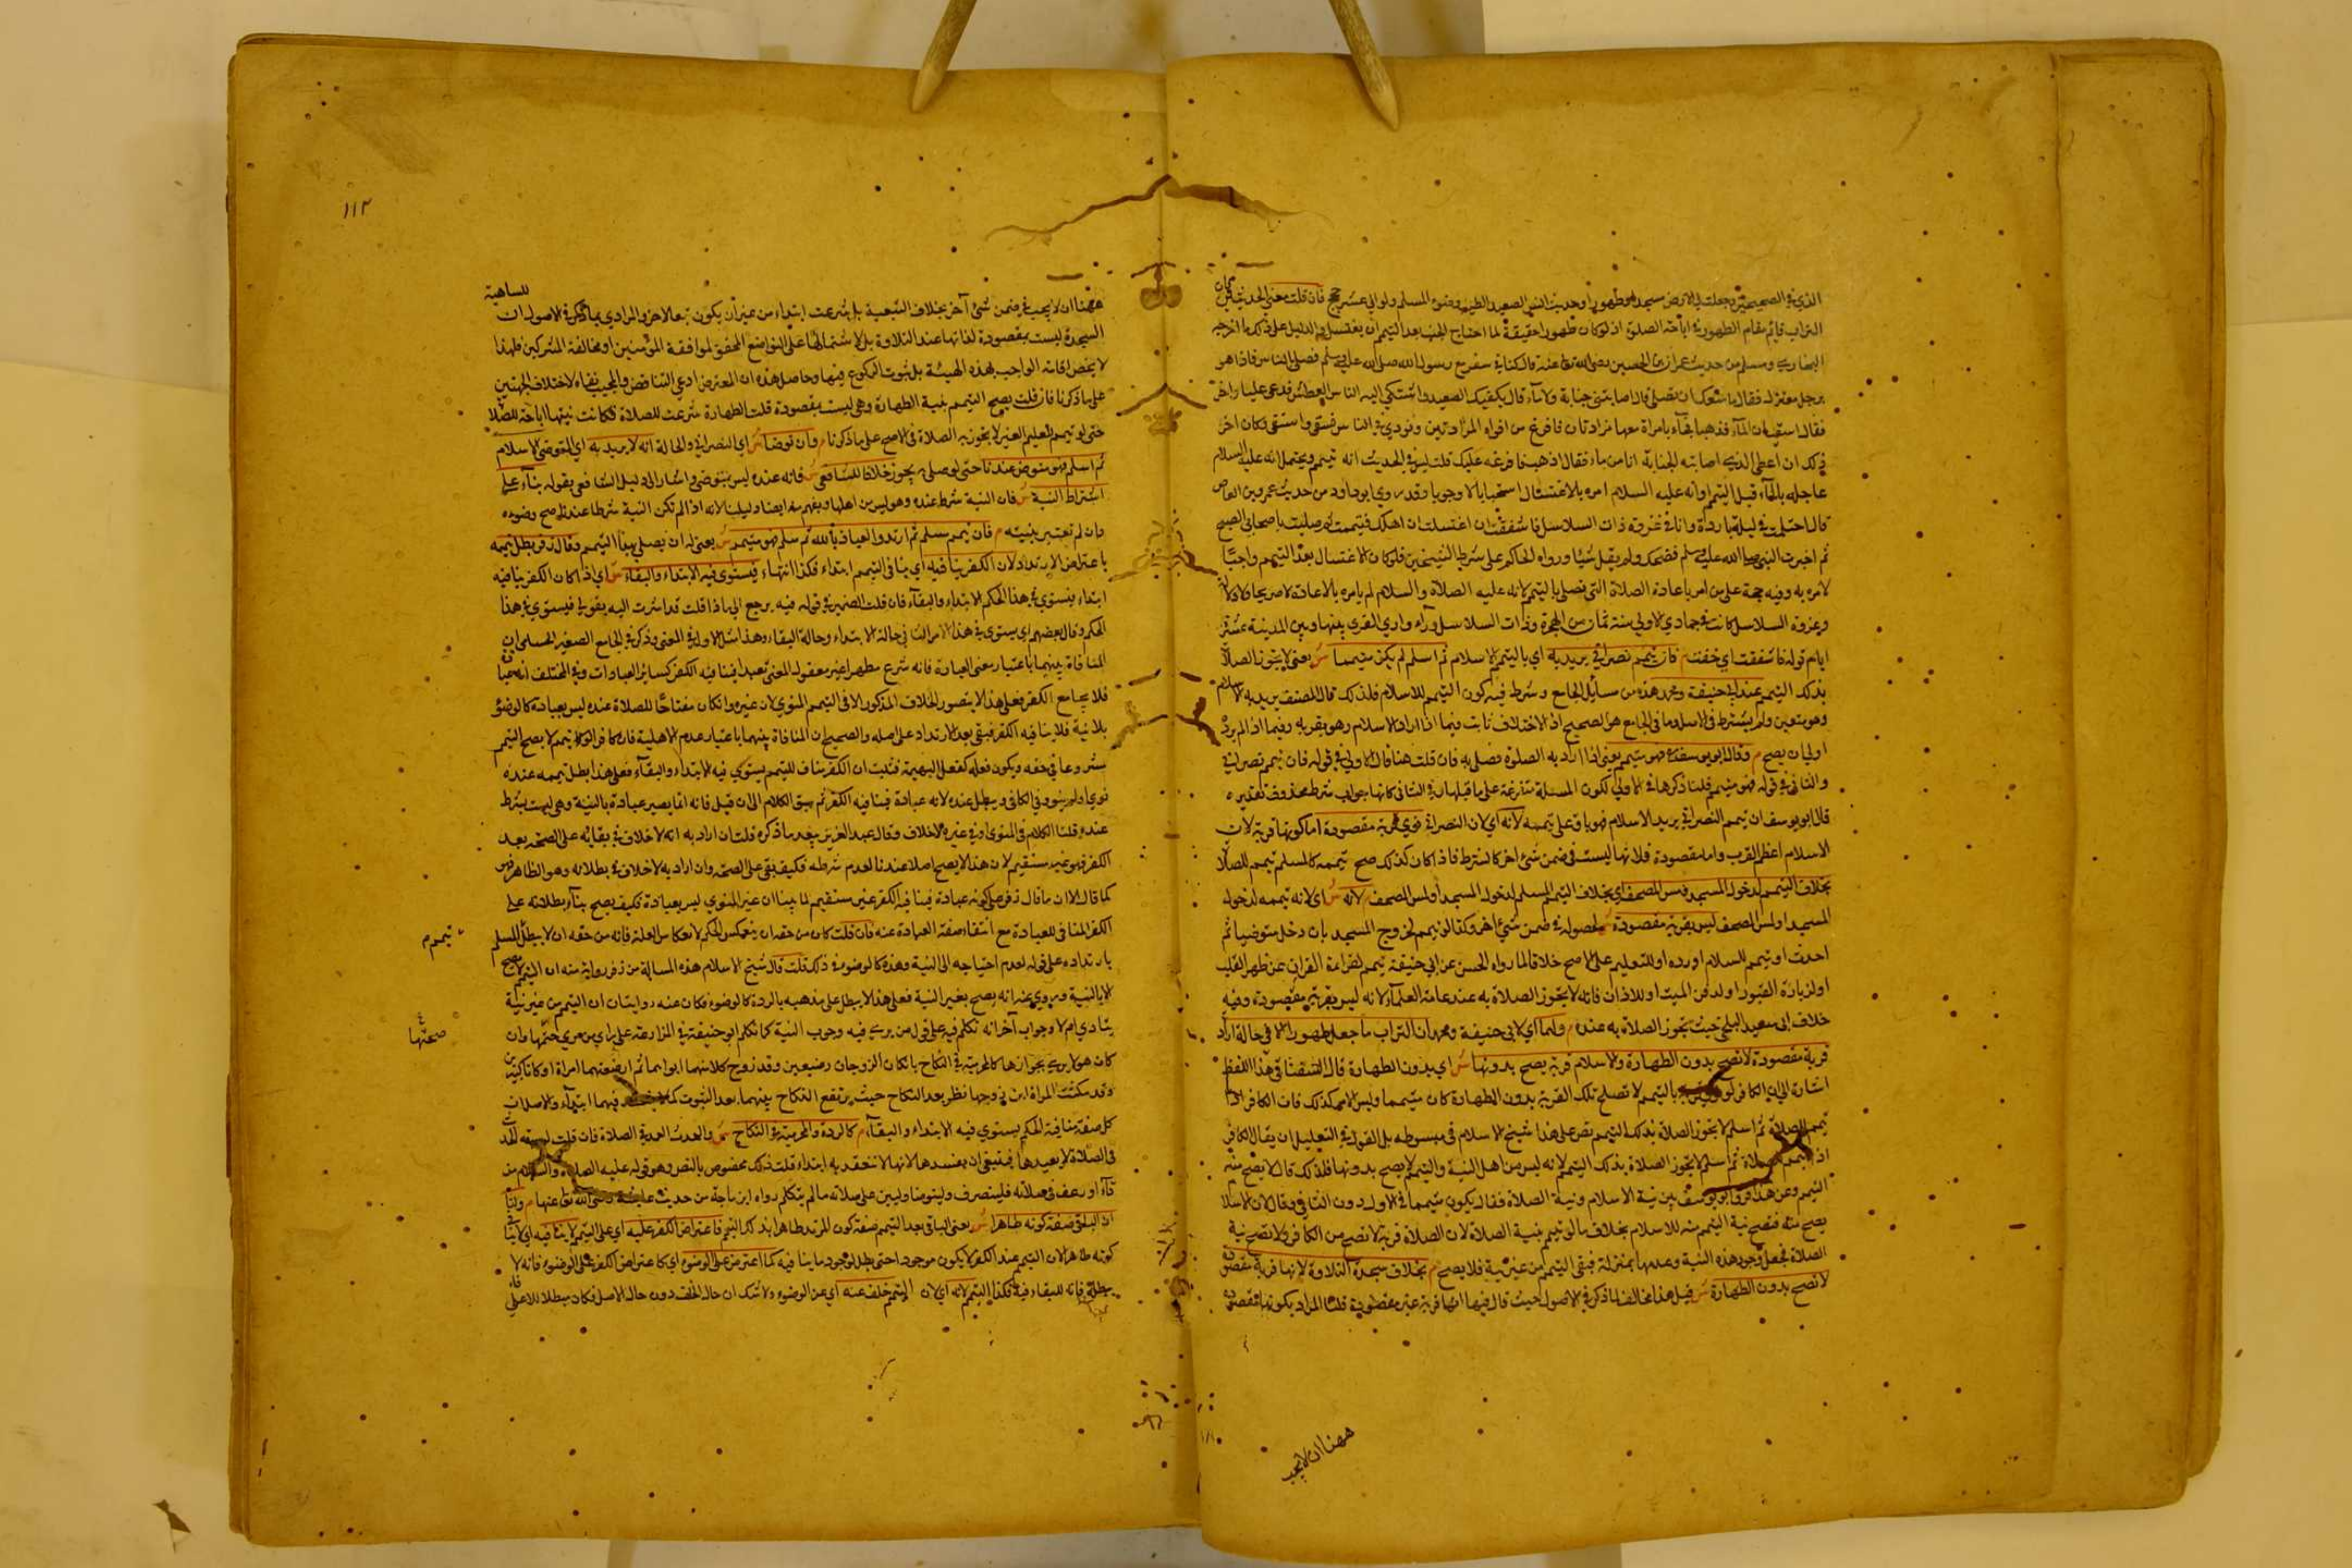 الذي في الصحيحين وجعلت لي الارض مسجدا وطهورا وحديث النبي الصعيد الطيب وضوء المسلم ولو الي عشر حجج فان قلت معني الحديث
التراب قايم مقام الطهورية في اباحة الصلوة اذ لو كان طهورا حقيقة لما احتاج الجنب بعد التيمم ان يغتسل والدليل علي ذلك ما اخرجه
البخاري ومسلم من حديث عمران بن الحصين رضي الله تعا عنه قال كنا في سفر مع رسول الله صلي الله عليه وسلم فصلي بالناس فاذا هو
برجل معتزل فقال ما منعك ان تصلي قال اصابتني جنابة ولا ماء قال يكفيك الصعيد واشتكي اليه الناس العطش فدعي عليا واخر
فقال استبغيان الماء فذهبا فجاء بامراة معها مزادتان فافرغ من افواه المزادتين ونودي في الناس فسقي واستقي وكان اخر
ذلك ان اعطي الذي اصابته الجنابة اناء من ماء فقال اذهب فافرغه عليك قلت ليس في الحديث انه تيمم ويحتمل انه عليه السلام
عاجله بالماء قبل التيمم او انه عليه السلام امره بالاغتسال استحبابا لا وجوبا وقد روي ابو داود من حديث عمرو بن العاص
قال احتلمت في ليلة باردة وانا في غزوة ذات السلاسل فاشفقت ان اغتسلت ان اهلك فتيممت ثم صليت باصحابي الصبح
ثم اخبرت النبي صلي الله عليه وسلم فضحك ولم يقل شيئا ورواه الحاكم علي شرط الشيخين فلو كان الاغتسال بعد التيمم واجبا
لامره به وفيه حجة علي من امر باعادة الصلاة التي تصلي بالتيمم لانه عليه الصلاة والسلام لم يامره بالاعادة لا صريحا ولا دلالة
وغزوة السلاسل كانت في جمادي الاولي سنة ثمان من الهجرة وذات السلاسل وراء وادي القري بينها وبين المدينة عشرة
ايام قوله فاشفقت اي خفت م فان تيمم نصراني يريد به اي بالتيمم الاسلام ثم اسلم لم يكن متيمما ش يعني لا تجوز الصلاة
بذلك التيمم عند ابي حنيفة ومحمد هذه من مسائل الجامع وشرط فيه كون التيمم للاسلام فلذلك قال المصنف يريد به الاسلام
وهو متعين ولم يشترط في الاصل وما في الجامع هو الصحيح اذ الاختلاف ثابت فيما اذا اراد الاسلام وهو يقربه وفيما اذا لم يرد
اولي ان يصح م وقال ابو يوسف هو متيمم يعني اذا اراد به الصلوة فصلي به فان قلت هنا قال الاولي في قوله فان تيمم نصراني
والثاني في قوله فهو متيمم قلت ذكرها في الاولي لكون المسئلة متفرعة علي ما قبلها وفي الثاني كانها جواب شرط محذوف تقديره
قال ابو يوسف ان تيمم النصراني يريد الاسلام فهو باق علي تيممه لانه اي لان النصراني نوي قربة مقصودة اما كونها قربة لان
الاسلام اعظم القرب واما مقصودة فلانها ليست في ضمن شئ اخر كالشرط فاذا كان كذلك صح تيممه كالمسلم تيمم للصلاة
بخلاف التيمم لدخول المسجد ومس المصحف اي بخلاف التيمم المسلم لدخول المسجد او لمس المصحف لانه ش اي لانه تيممه لدخول
المسجد او لمس المصحف ليس بقربة مقصودة ش لحصوله في ضمن شئ اخر وكذا لو تيمم لخروج المسجد بان دخل متوضيا ثم
احدث او تيمم للسلام او رده او للتعليم علي الاصح خلافا لما رواه الحسن عن ابي حنيفة تيمم لقراءة القران عن ظهر القلب
او لزيارة القبور او لدفن الميت او للاذان فانه لا يجوز الصلاة به عند عامة العلماء لانه ليس بقربة مقصودة وفيه
خلاف ابي سعيد البلخي حيث تجوز الصلاة به عنده م ولهما اي لابي حنيفة ومحمد ان التراب ما جعل طهورا الا في حالة ارادة
قربة مقصودة لا تصح بدون الطهارة والاسلام قربة يصح بدونها ش اي بدون الطهارة قال السغناقي هذا اللفظ
اشارة الي ان الكافر لو بالتيمم لا تصلح تلك القربة بدون الطهارة كان متيمما وليس الامر كذلك فان الكافر اذا
تيمم للصلاة ثم اسلم لا تجوز الصلاة بذلك التيمم نص علي هذا شيخ الاسلام في مبسوطه بل القول في التعليل ان يقال الكافر
اذا تيمم للصلاة ثم اسلم لا تجوز الصلاة بذلك التيمم لانه ليس من اهل النية والتيمم لا يصح بدونها فلذلك قال لا يصح منه
التيمم وعن هذا فرق ابو يوسف بين نية الاسلام ونية الصلاة فقال يكون متيمما في الاول دون الثاني وقال لان الاسلام
يصح منه فتصح نية التيمم منه للاسلام بخلاف ما لو تيمم بنية الصلاة لان الصلاة قربة لا تصح من الكافر فلا تصح نية
الصلاة فجعل وجود هذه النية وعدمها بمنزلة فبقي التيمم من غير نية فلا يصح م بخلاف سجدة التلاوة لانها قربة مقصودة
لا تصح بدون الطهارة ش قيل هذا مخالف لما ذكر في الاصول حيث قال فيها انها قربة غير مقصودة قلت المراد بكونها مقصودة
ههنا ان لا يجب
١١٢
ههنا ان لا يجب في ضمن شئ آخر بخلاف التبعية بل شرعت ابتداء من غير ان يكون تبعا لاخر والمراد بما ذكر في الاصول ان
للساهية
السجدة ليست بمقصودة لذاتها عند التلاوة بل لاشتمالها علي التواضع المحقق لموافقة المؤمنين او مخالفة المشركين فلهذا
لا يختص اقامة الواجب بهذه الهيئة بل ينوب الركوع منها وحاصل هذه ان المعترض ادعي التناقض والمجيب نفاه لاختلاف الجهتين
علي ما ذكرنا فان قلت يصح التيمم بنية الطهارة وهي ليست بمقصودة قلت الطهارة شرعت للصلاة فكانت نيتها اباحة للصلاة
حتي لو تيمم لتعليم الغير لا يجوز به الصلاة في الاصح علي ما ذكرنا م وان توضا ش اي النصراني والحالة انه لا يريد به اي التوضي الاسلام
ثم اسلم فهو متوض عندنا حتي لو صلي به يجوز خلافا للشافعي ش فانه عنده ليس بمتوضي واشار الي دليل الشافعي بقوله بناء علي
اشتراط النية ش فان النية شرط عنده وهو ليس من اهلها ويفهم منه ايضا دليلنا لانه اذا لم تكن النية شرطا عندنا صح وضوءه
وان لم تعتبر بنيته م فان تيمم مسلم ثم ارتد والعياذ بالله ثم اسلم فهو متيمم ش يعني له ان يصلي بهذا التيمم وقال زفر بطل تيممه
باعتراض الارتداد لان الكفر ينافيه اي ينافي التيمم ابتداء فكذا انتهاء فيستوي فيه الابتداء والبقاء ش اي اذا كان الكفر ينافيه
ابتداء يستوي في هذا الحكم الابتداء والبقاء فان قلت الضمير في قوله فيه يرجع الي ماذا قلت قد اشرت اليه بقولي فيستوي في هذا
الحكم وقال بعضهم اي يستوي في هذا الامر الثنا في حالة الابتداء وحالة البقاء وهذا مثل الاول في المعني وذكر في الجامع الصغير الحسامي ان
المنافاة بينهما باعتبار معني العبادة فانه شرع مطهرا غير معقول المعني تعبدا فينافيه الكفر كسائر العبادات وفي المختلف انه عبادة
فلا يجامع الكفر فعلي هذا لا يتصور الخلاف المذكور الا في التيمم المنوي لان غيره وان كان مفتاحا للصلاة عنده ليس بعبادة كالوضوء
بلا نية فلا ينافيه الكفر فيبقي بعد الارتداد علي اصله والصحيح ان المنافاة بينهما باعتبار عدم الاهلية فان كافرا لو تيمم لا يصح التيمم
مشروعا في حقه ويكون فعله كفعل البهيمة فثبت ان الكفر مناف للتيمم يستوي فيه الابتداء والبقاء فعلي هذا بطل تيممه عنده
نوي او لم ينو وفي الكافي ويبطل عنده لانه عبادة فينافيه الكفر ثم سبق الكلام الي ان قيل فانه انما يصير عبادة بالنية وهي ليست بشرط
عنده قلنا الكلام في المنوي وفي غيره لا خلاف وقال عبد العزيز بعد ما ذكره قلت ان اراد به انه لا خلاف في بقائه علي الصحة بعد
الكفر فهو غير مستقيم لان هذا لا يصح اصلا عندنا لعدم شرطه فكيف يبقي علي الصحة وان اراد به لا خلاف في بطلانه وهو الظاهر فهو
كما قال الا ان ما قال زفر هي كونه عبادة فينافيه الكفر غير مستقيم لما بينا ان غير المنوي ليس بعبادة فكيف يصح بناء بطلانه علي
الكفر المنافي للعبادة مع انتفاء صفة العبادة عنه فان قلت كان من حقه ان ينعكس الحكم لانعكاس العلة فانه من حقه ان لا يبطل المسلم
تيمم
بارتداده علي قوله لعدم احتياجه الي النية وهذه كالوضوء في ذلك قلت قال شيخ الاسلام هذه المسالة من زفر رواية منه ان التيمم لا يصح
الا بالنية وروي عنه انه يصح بغير النية فعلي هذا لا يبطل علي مذهبه بالردة كالوضوء فكان عنه روايتان ان التيمم من غير نية
يتادي ام لا وجواب آخر انه تكلم فيه علي قول من يري فيه وجوب النية كما تكلم ابو حنيفة في المزارعة علي راي من يري صحتها وان
صحتها
كان هو لا يري بجوازها كالمحرمية في النكاح بان كان الزوجان رضيعين وقد زوج كلا منهما ابواهما ثم ارضعتهما امراة او كانا كبيرين
وقد مكنت المراة ابن زوجها نظر بعد النكاح حيث يرتفع النكاح بينهما بعد الثبوت كما فيهما ابتداء والاصل ان
كل صفة منافية الحكم يستوي فيه الابتداء والبقاء م كالردة والمحرمية في النكاح ش والحدث العمد في الصلاة فان قلت لو سبقه الحدث
في الصلاة لا يعيدها فينبغي ان يفسدها لانها لا تنعقد به ابتداء قلت ذلك مخصوص بالنص وهو قوله عليه الصلاة والسلام من
قاء او رعف في صلاته فلينصرف وليتوضا وليبن علي صلاته ما لم يتكلم رواه ابن ماجة من حديث عايشة رضي الله تعا عنها م ولنا
ان الباقي صفة كونه طاهرا ش يعني الباقي بعد التيمم صفة كون المرتد طاهرا بذلك التيمم فاعتراض الكفر عليه اي علي التيمم لا ينافيه اي لا ينافي
كونه طاهرا لان التيمم عند الكفر لا يكون موجودا حتي يبطل لوجود ما ينافيه كما اعترض علي الوضوء اي كاعتراض الكفر علي الوضوء فانه لا
يبطله فانه للبقاء فيه فكذا التيمم لانه اي لان التيمم خلف عنه اي عن الوضوء ولا شك ان حال الخلف دون حال الاصل فكان مبطلا للاعلي